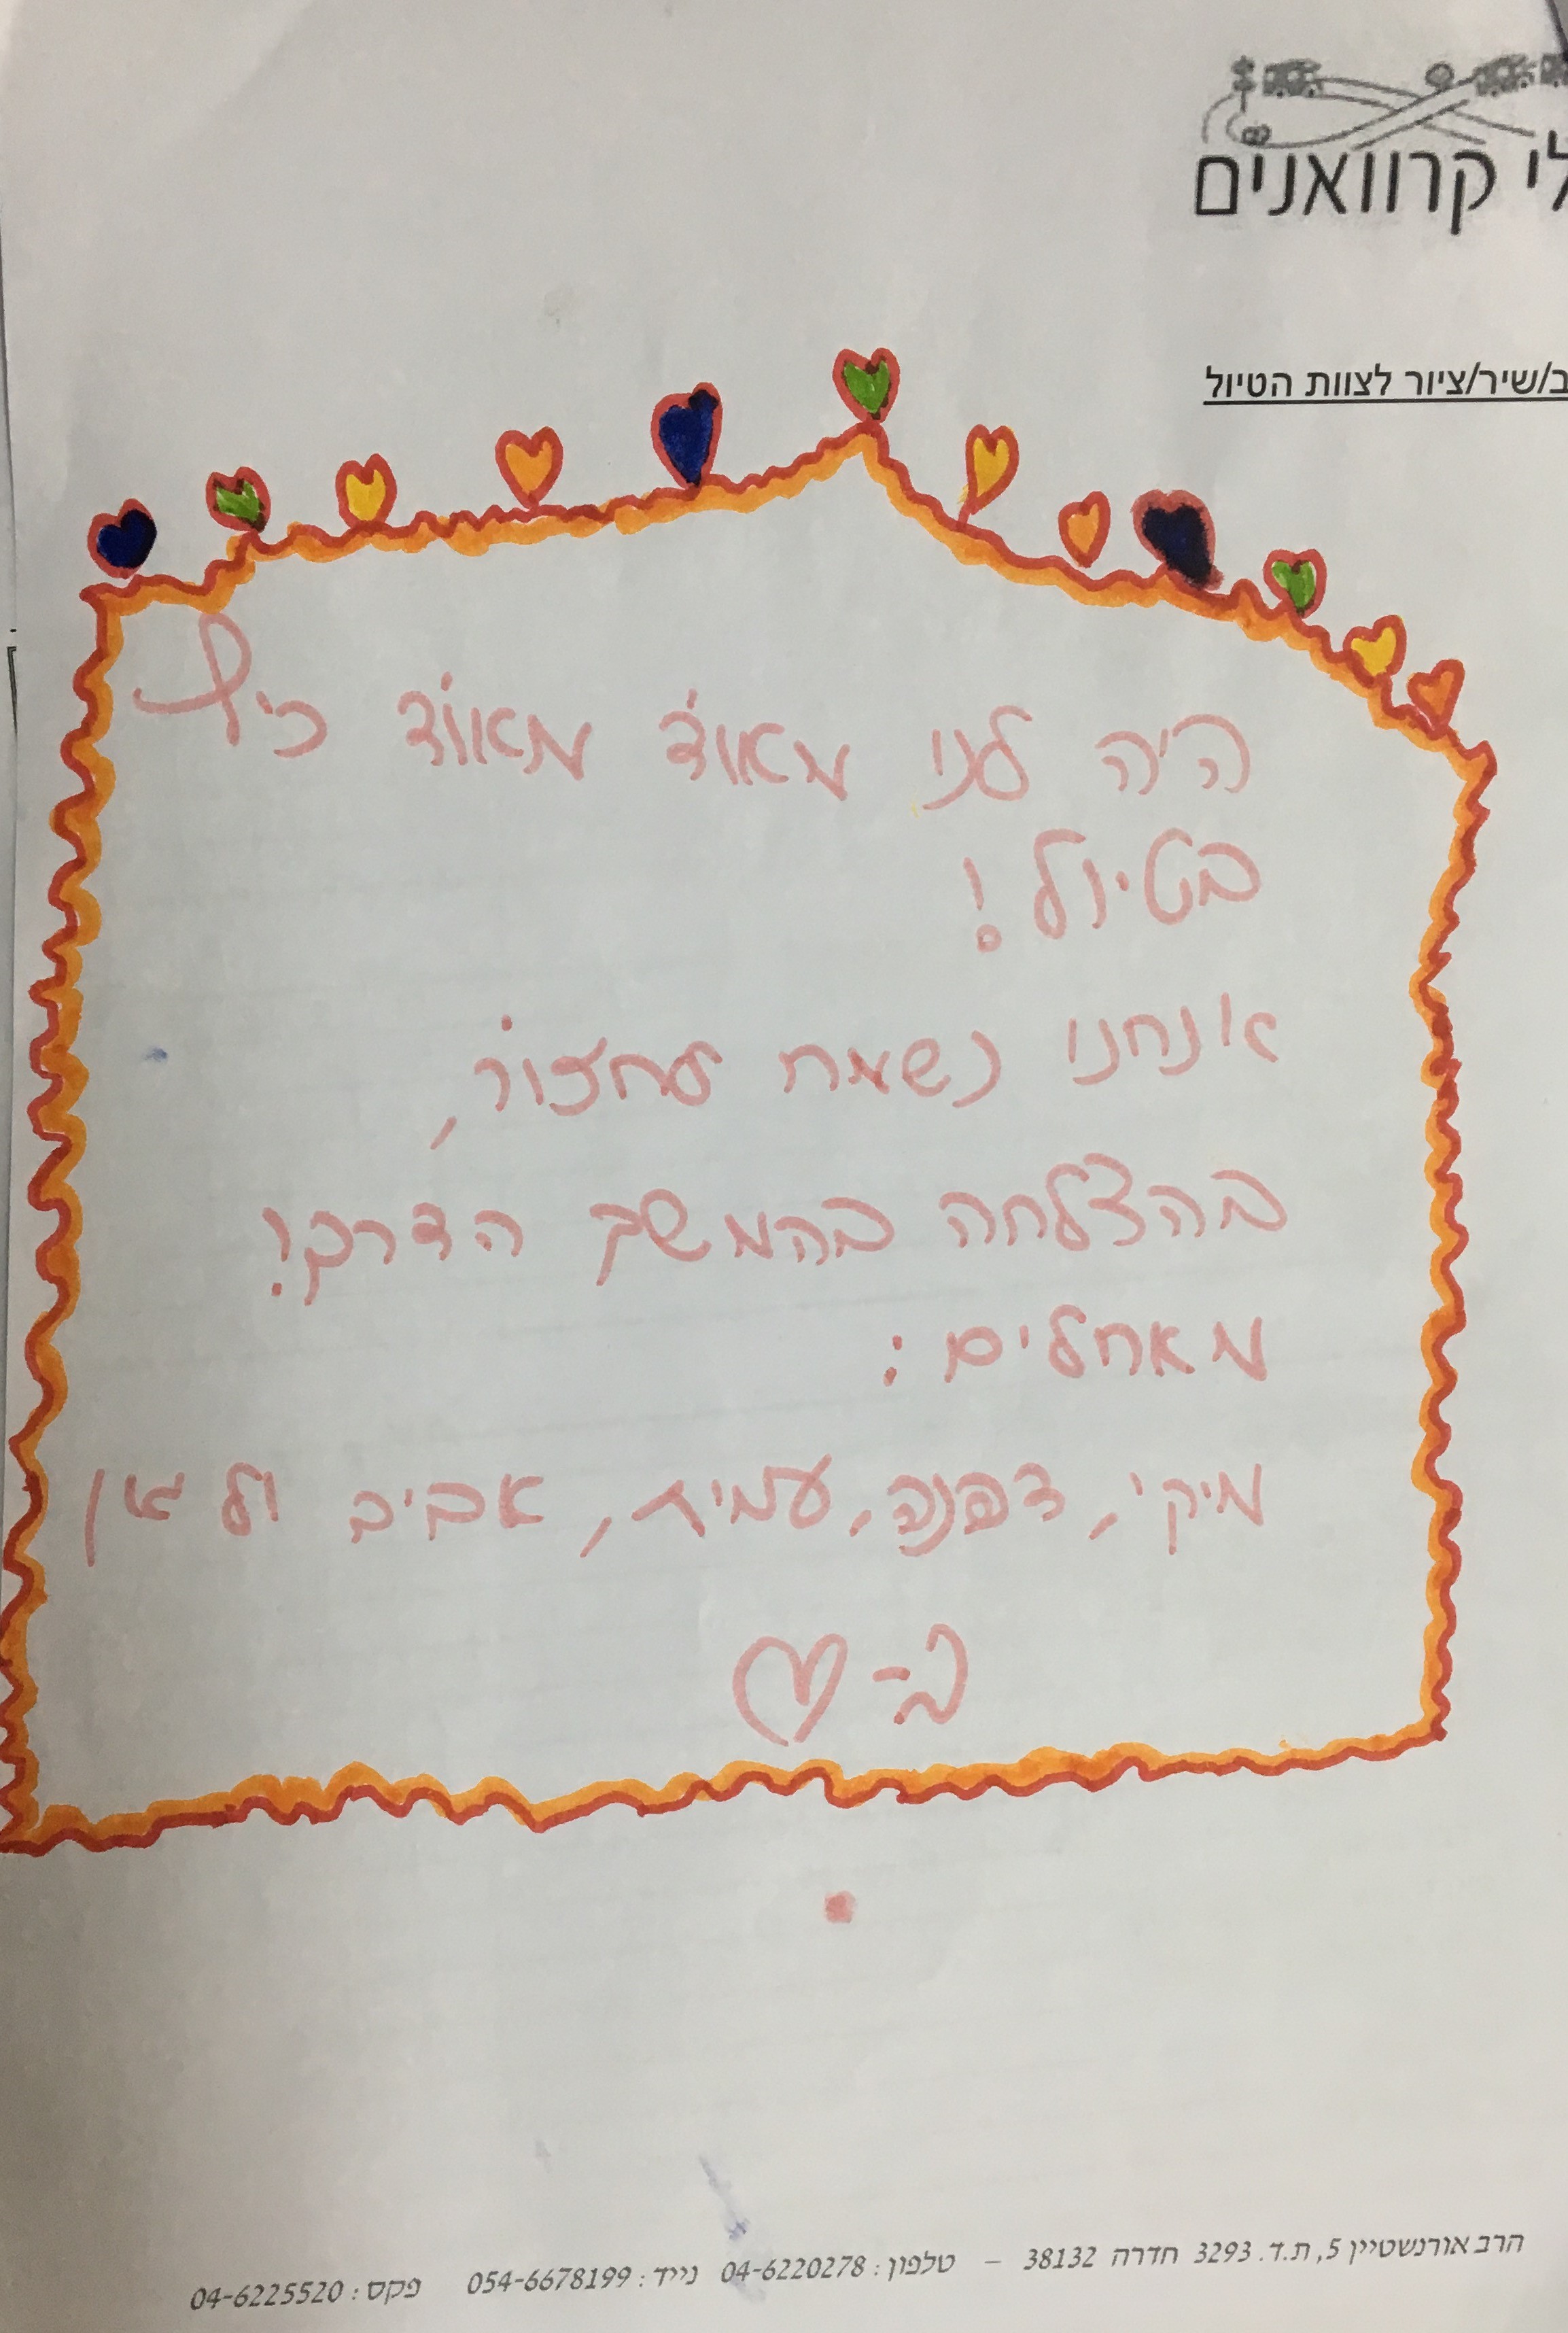 לי קרוואנים
ב/שיר/ציור לצוות הטיול
היה לנו מאוד מאוד כיף
בטיול!
אנחנו נשמח לחזור,
בהצלחה בהמשך הדרך!
מאחלים:
מיקי, דפנה, עמית, אביב ולאן
הרב אורנשטיין 5, ת.ד. 3293 חדרה 38132 – טלפון: 04-6220278 נייד: 054-6678199 פקס: 04-6225520